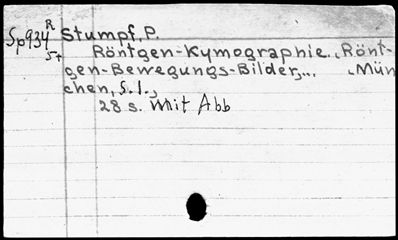 R
Sp934 Stumpf, P.
St Röntgen-Kymographie... Rönt-
gen-Bewegungs-Bilder,... Mün-
chen, s.l.,
28 s. mit Abb